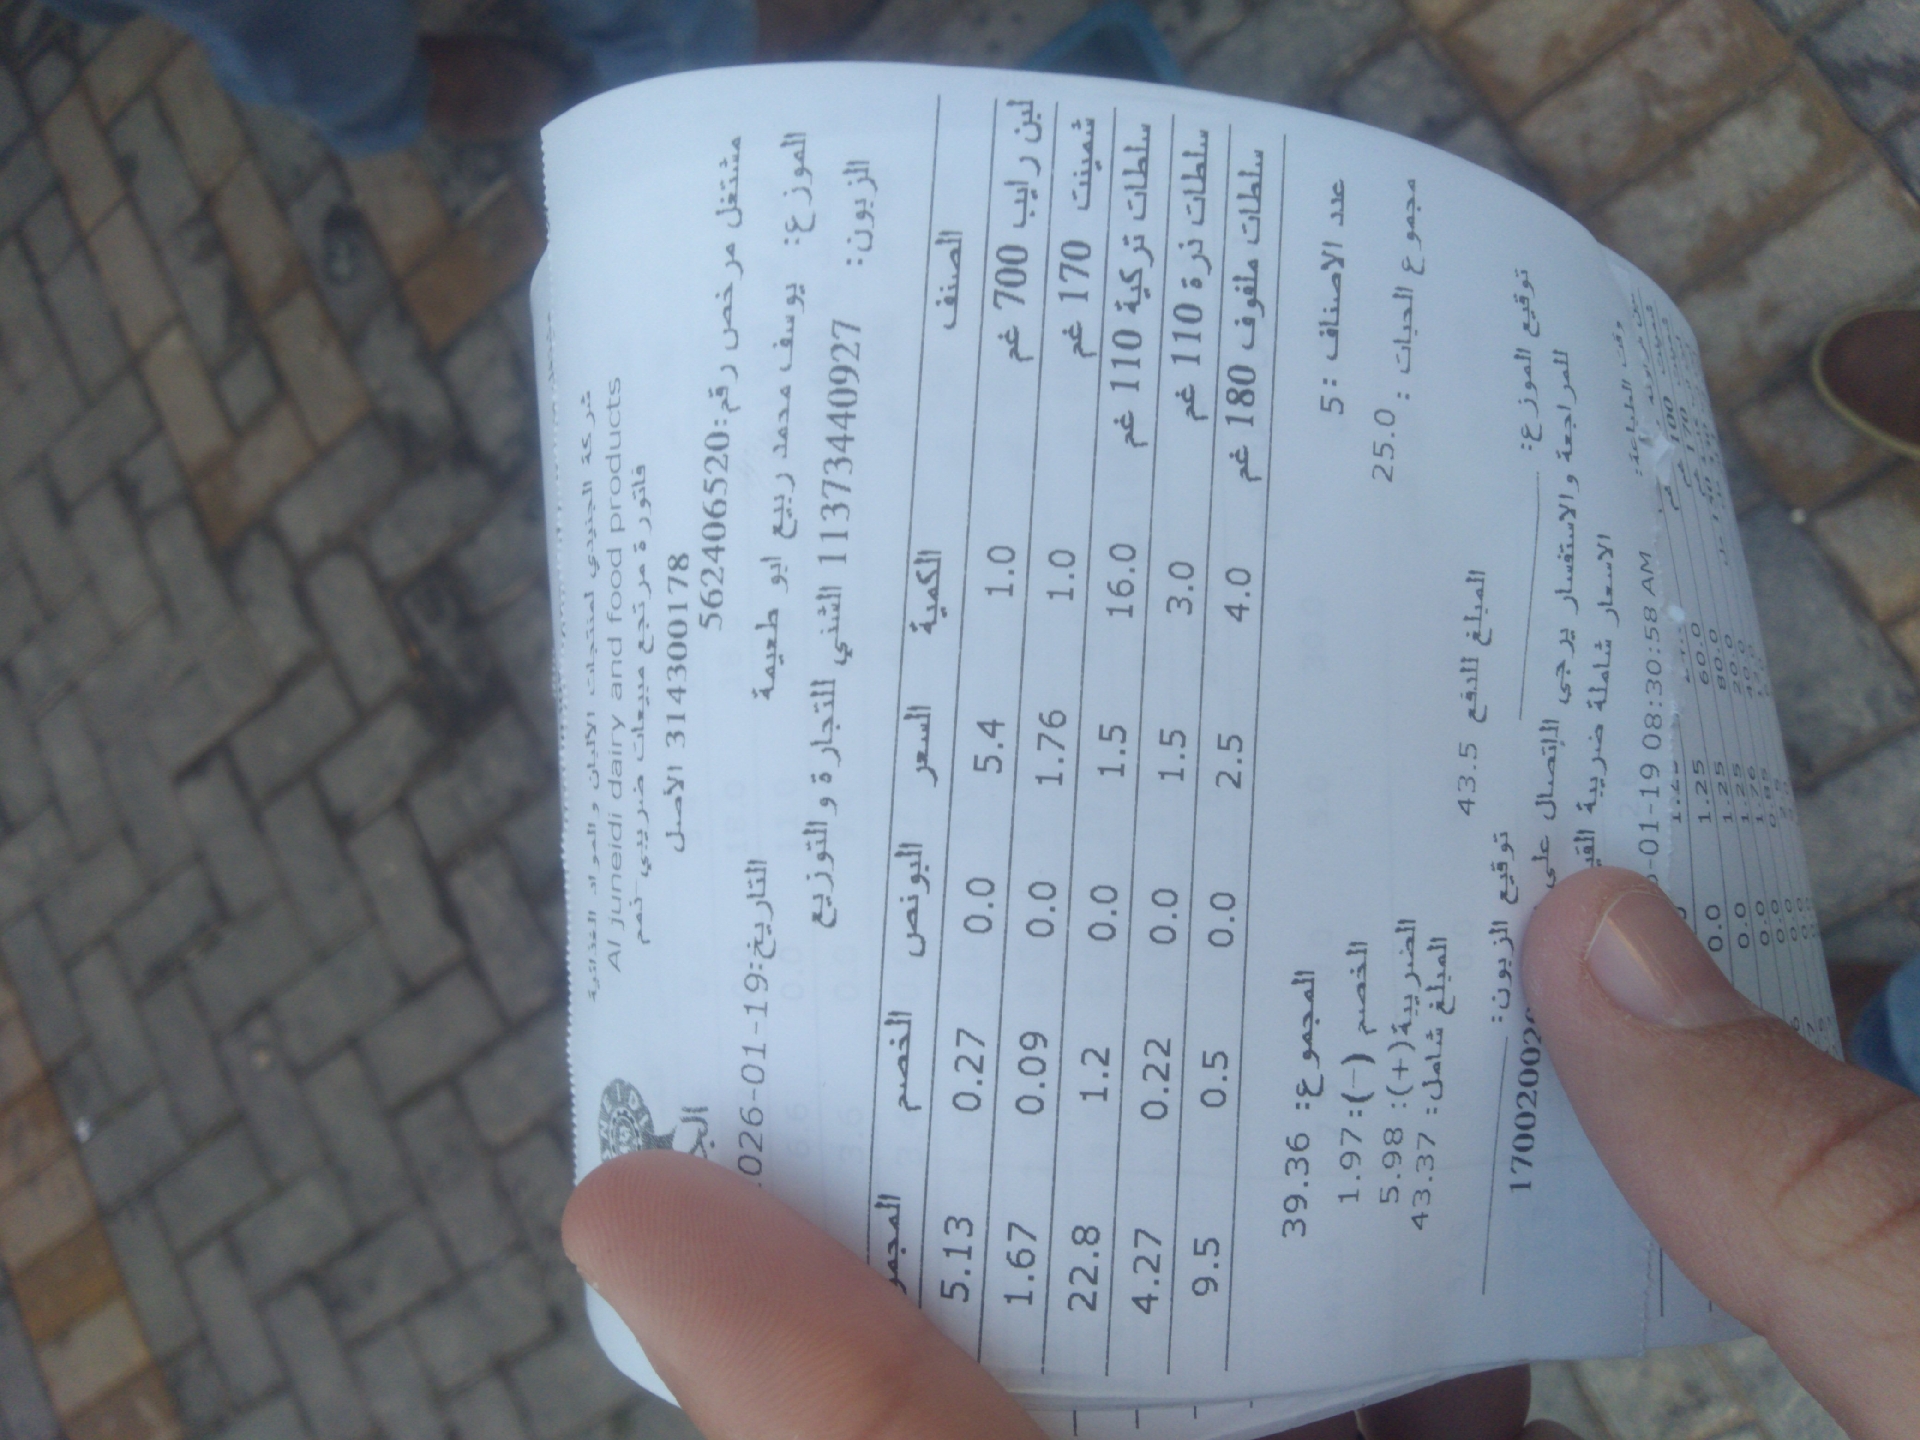 شركة الجنيدي لمنتجات الالبان و المواد الغذائية
Al juneidi dairy and food products
فاتورة مرتجع مبيعات ضريبي تمم
314300178 الاصل
مشتغل مرخص رقم:562406520
الموزع: يوسف محمد ربيع ابو طعيمة
التاريخ:026-01-19
الزبون: 1137344092​7 الثني للتجارة و التوزيع
الصنف الكمية السعر البونص الخصم المجمو
لبن رايب 700 غم 1.0 5.4 0.0 0.27 5.13
شمينت 170 غم 1.0 1.76 0.0 0.09 1.67
سلطات تركية 110 غم 16.0 1.5 0.0 1.2 22.8
سلطات ذرة 110 غم 3.0 1.5 0.0 0.22 4.27
سلطات ملفوف 180 غم 4.0 2.5 0.0 0.5 9.5
عدد الاصناف :5 المجموع: 39.36
مجموع الحبات : 25.0 الخصم (-):1.97
الضريبة(+): 5.98
المبلغ شامل: 43.37
المبلغ للدفع 43.5
توقيع الموزع: توقيع الزبون:
للمراجعة والاستفسار يرجى الاتصال على
الاسعار شاملة ضريبة
-01-19 08:30:58 AM